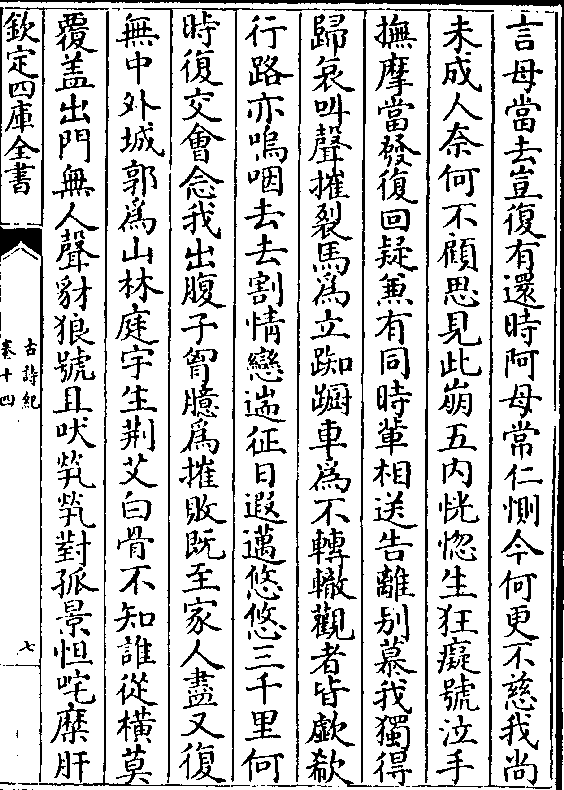 言母當去豈復有還時阿母常仁惻今何更不慈我尚
未成人奈何不顧思見此崩五内恍惚生狂癡號泣手
撫摩當發復回疑兼有同時輩相送告離别慕我獨得
歸哀叫聲摧裂馬為立踟蹰車為不轉轍觀者皆歔欷
行路亦嗚咽去去割情戀遄征日遐邁悠悠三千里何
時復交會念我出腹子胷臆為摧敗既至家人盡又復
無中外城郭為山林庭宇生荆艾白骨不知誰從横莫
覆盖出門無人聲豺狼號且吠煢煢對孤景怛咤糜肝
欽定四庫全書
古詩紀
卷十四
七